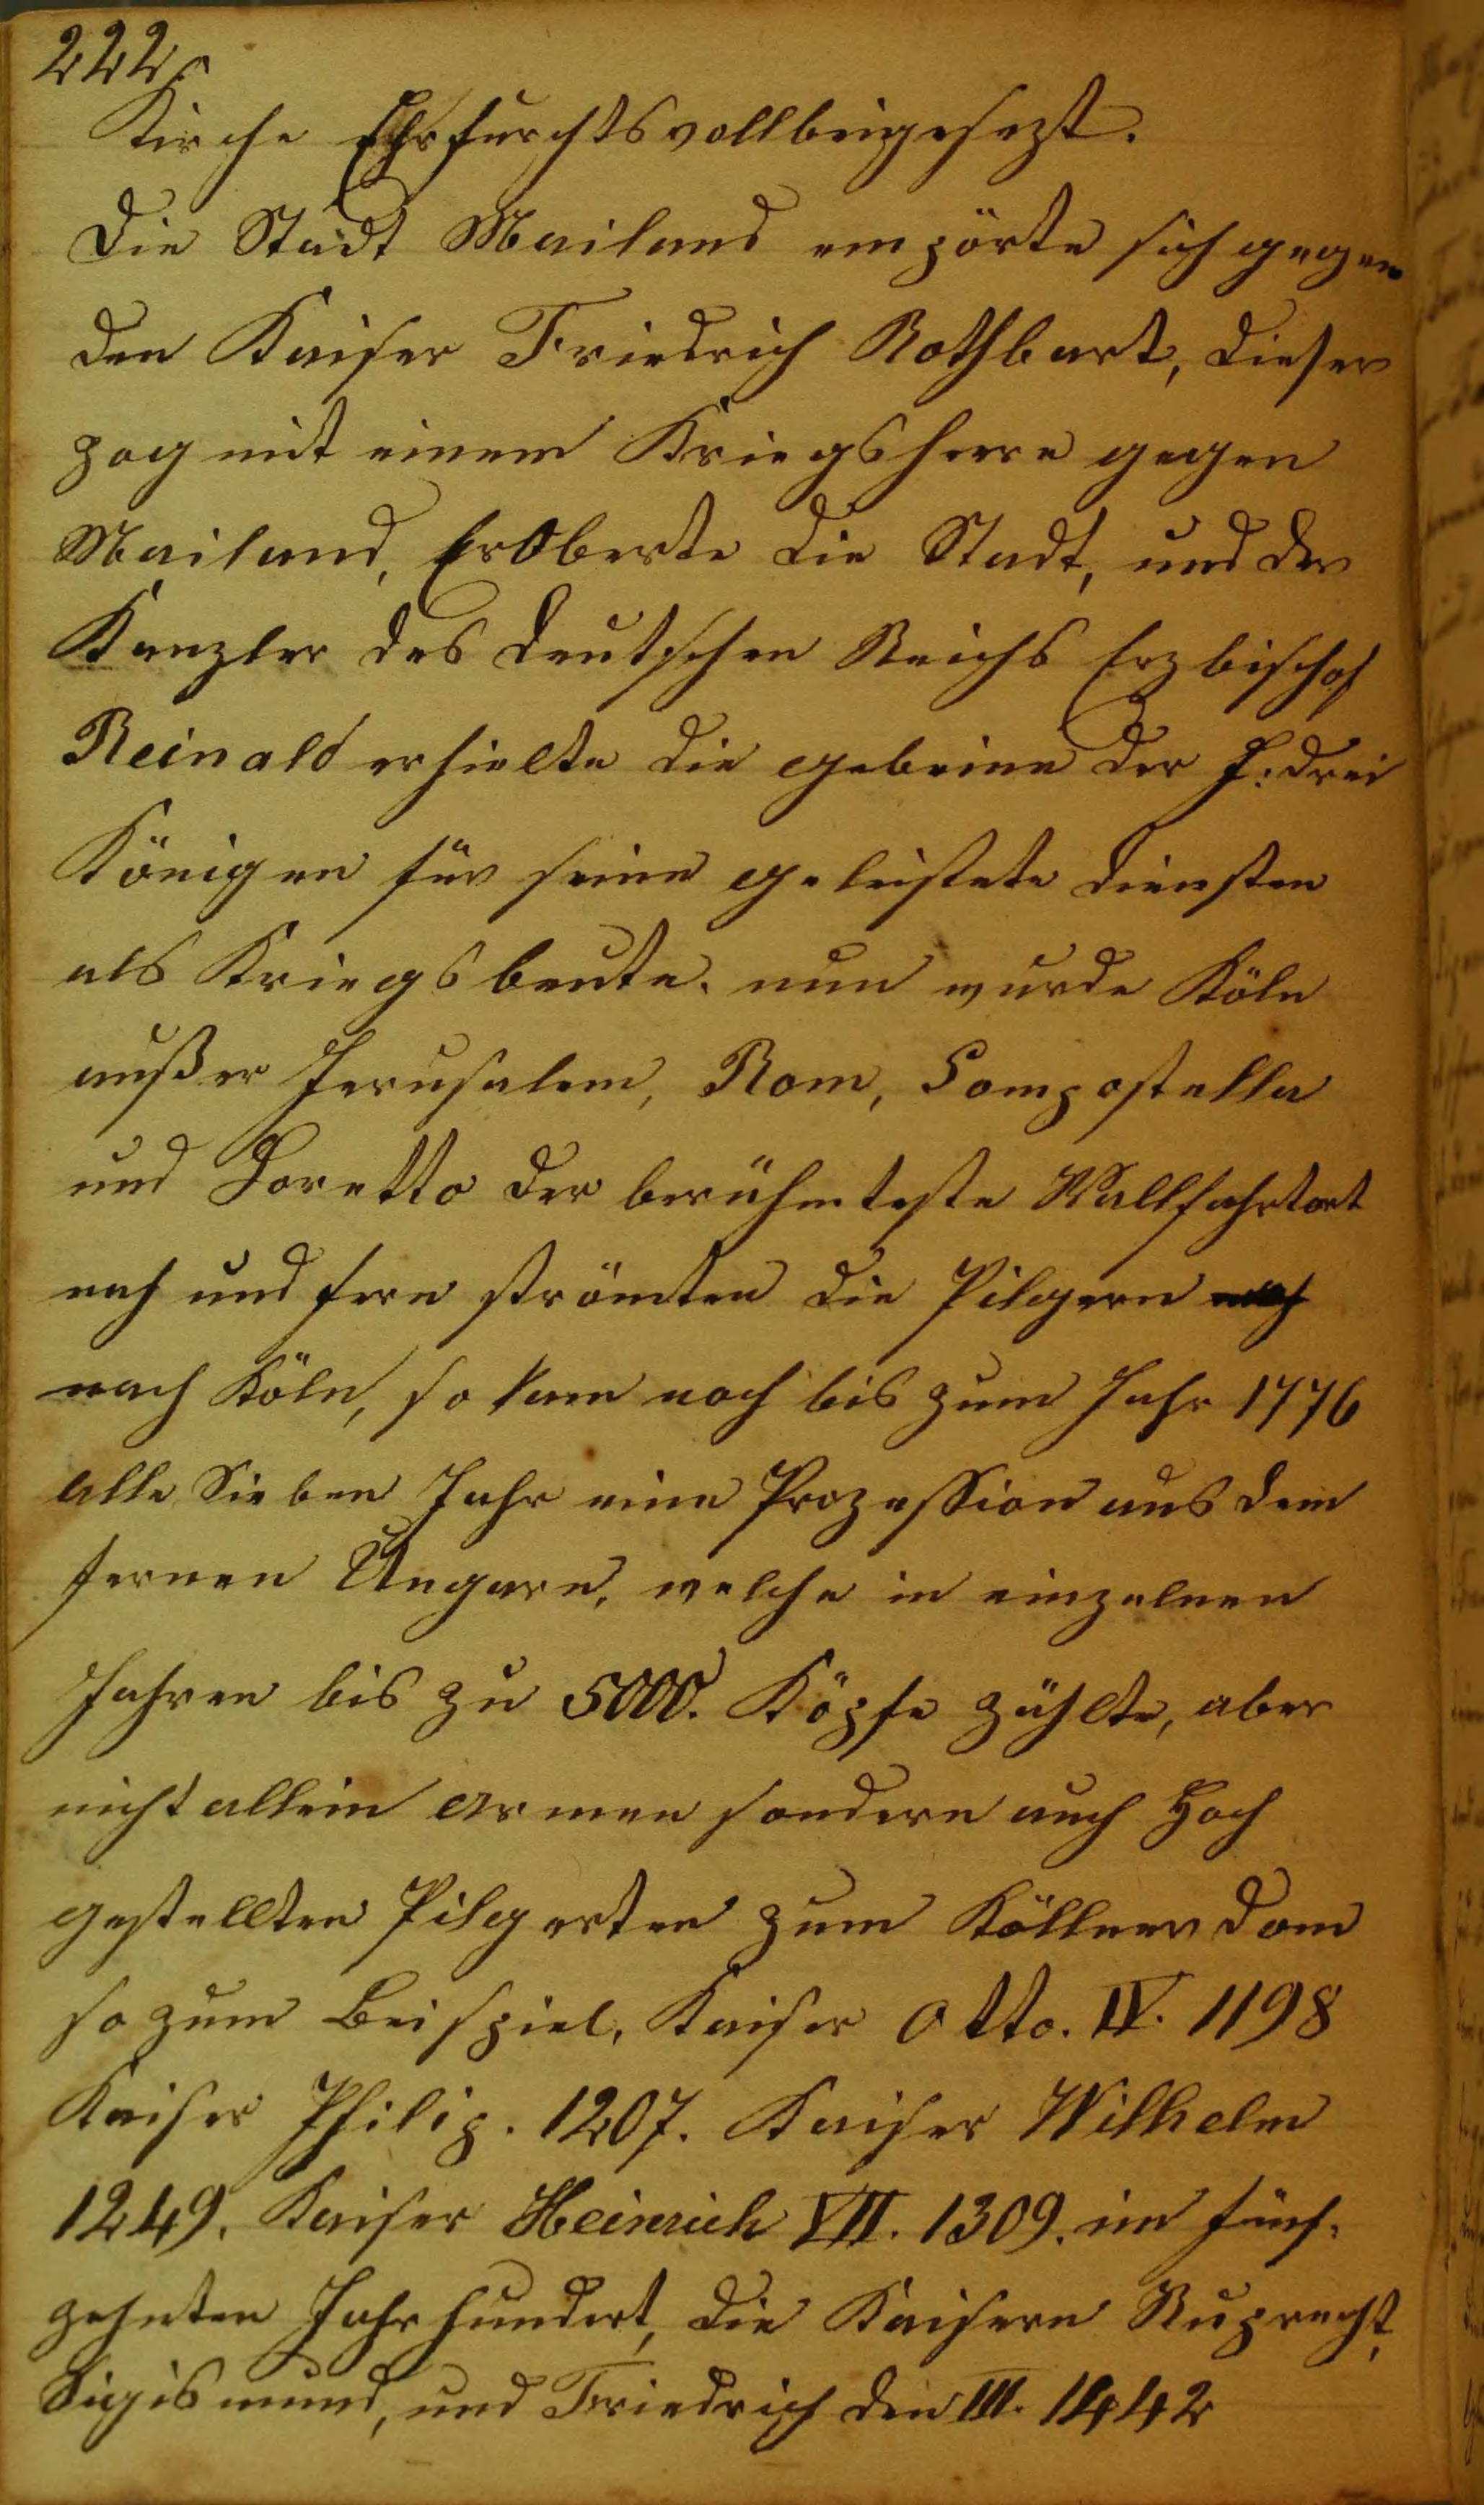 222
Kirche Ehrfurchtsvollbeigesezt.
Die Stadt Mailand empörte sich gegen
den Kaiser Friedrich Rothbart, dieser
zog mit einem Kriegsheere gegen
Mailand, ErOberte die Stadt, und der
Kanzler des deutschen Reichs Erzbischof
Reinald erhielte die gebeine der h: drei
Königen für seine geleistete diensten
als Kriegsbeute. nun wurde Köln
außer Jerusalem, Rom, Compostella
und Loretto der berühmteste Wallfahrtort
nah und fern strömten die Pilgern noch
nach Köln, so kam noch bis zum Jahr 1776
alle Sieben Jahr eine Prozession aus dem
fernen Ungarn, welche in einzelnen
Jahren bis zu 5000. Köpfe zählte, aber
nicht allein armen sondern auch Hoch
gestellten Pilgerten zum Köllner dom
so zum Beispiel, Kaiser Otto. IV. 1198
Kaiser Philip. 1207. Kaiser Wilhelm
1249. Kaiser Heinrich VII. 1309. im fünf:
zehnten Jahrhundert, die Kaisern Ruprecht,
Sigismund, und Friedrich den III. 1442